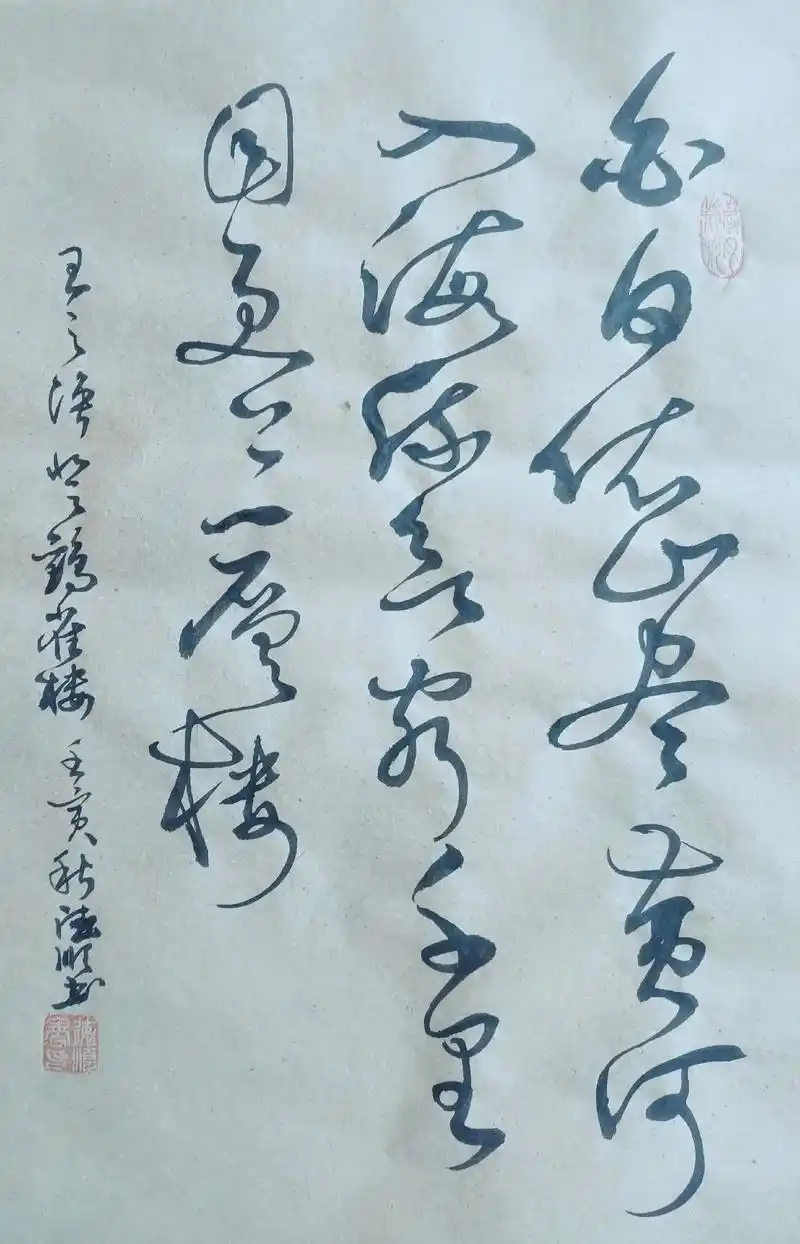 白日依山尽黄河
入海流欲穷千里
目更上一层楼
王之涣登鹳雀楼 壬寅秋德顺书